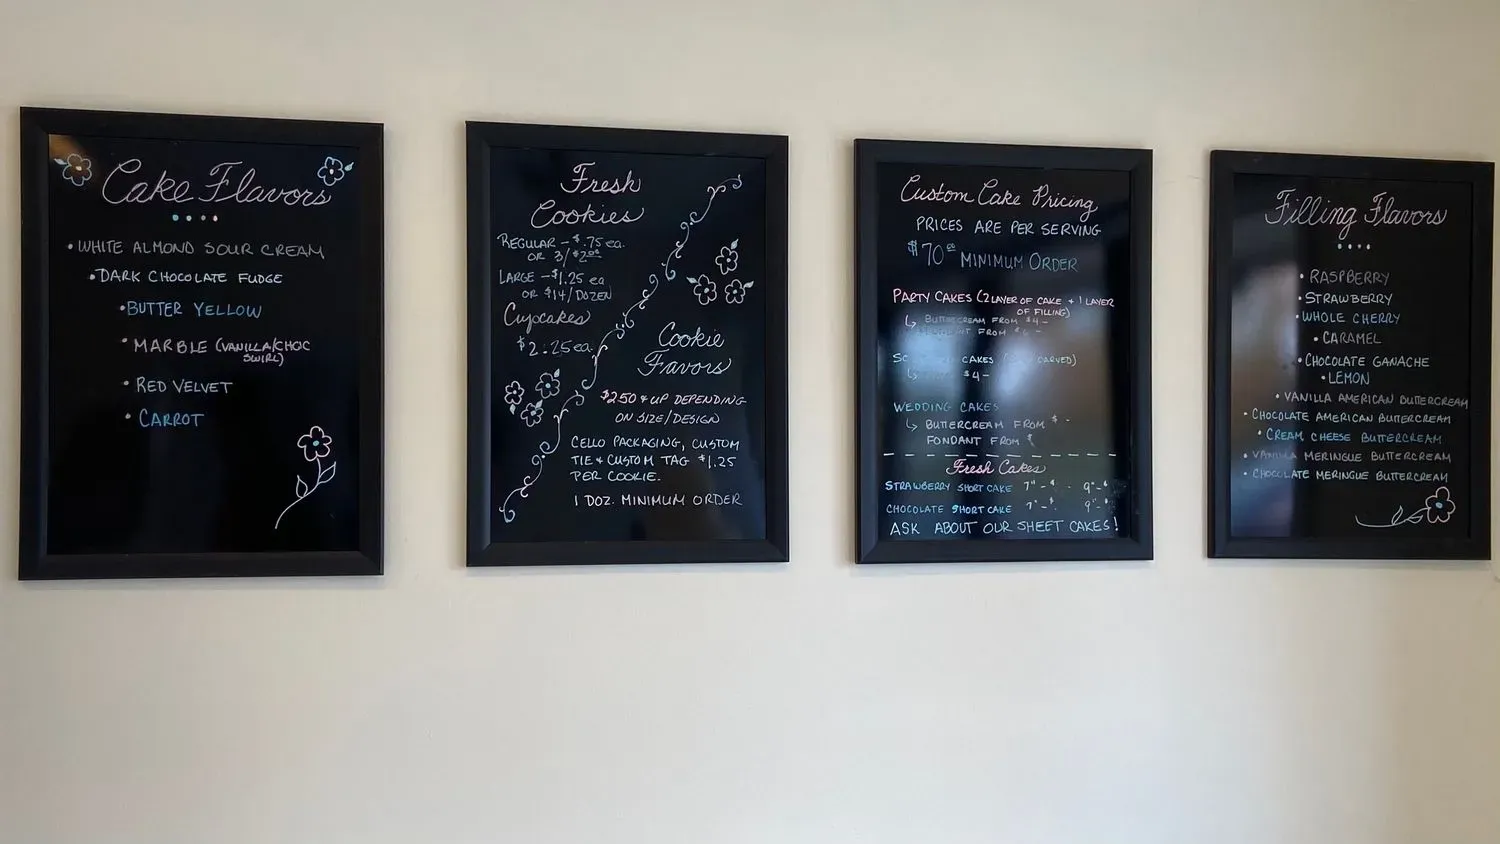 Cake Flavors
• WHITE ALMOND SOUR CREAM
• DARK CHOCOLATE FUDGE
• BUTTER YELLOW
• MARBLE (VANILLA/CHOC
SWIRL)
• RED VELVET
• CARROT
Fresh
Cookies
REGULAR – $.75 ea.
OR 3/$2.00
LARGE – $1.25 ea
OR $14/DOZEN
Cupcakes
$2.25ea.
Cookie
Favors
$2.50 & UP DEPENDING
ON SIZE/DESIGN
CELLO PACKAGING, CUSTOM
TIE & CUSTOM TAG $1.25
PER COOKIE.
1 DOZ. MINIMUM ORDER
Custom Cake Pricing
PRICES ARE PER SERVING
$70.00 MINIMUM ORDER
PARTY CAKES (2 LAYER OF CAKE + 1 LAYER
OF FILLING)
BUTTERCREAM FROM $4–
FROM
CAKES
$4–
WEDDING CAKES
BUTTERCREAM FROM $
FONDANT FROM $
Fresh Cakes
STRAWBERRY SHORT CAKE 7" – $ 9" – $
CHOCOLATE SHORT CAKE 7" – $ 9" – $
ASK ABOUT OUR SHEET CAKES!
Filling Flavors
• RASPBERRY
• STRAWBERRY
• WHOLE CHERRY
• CARAMEL
• CHOCOLATE GANACHE
• LEMON
• VANILLA AMERICAN BUTTERCREAM
• CHOCOLATE AMERICAN BUTTERCREAM
• CREAM CHEESE BUTTERCREAM
• VANILLA MERINGUE BUTTERCREAM
• CHOCOLATE MERINGUE BUTTERCREAM